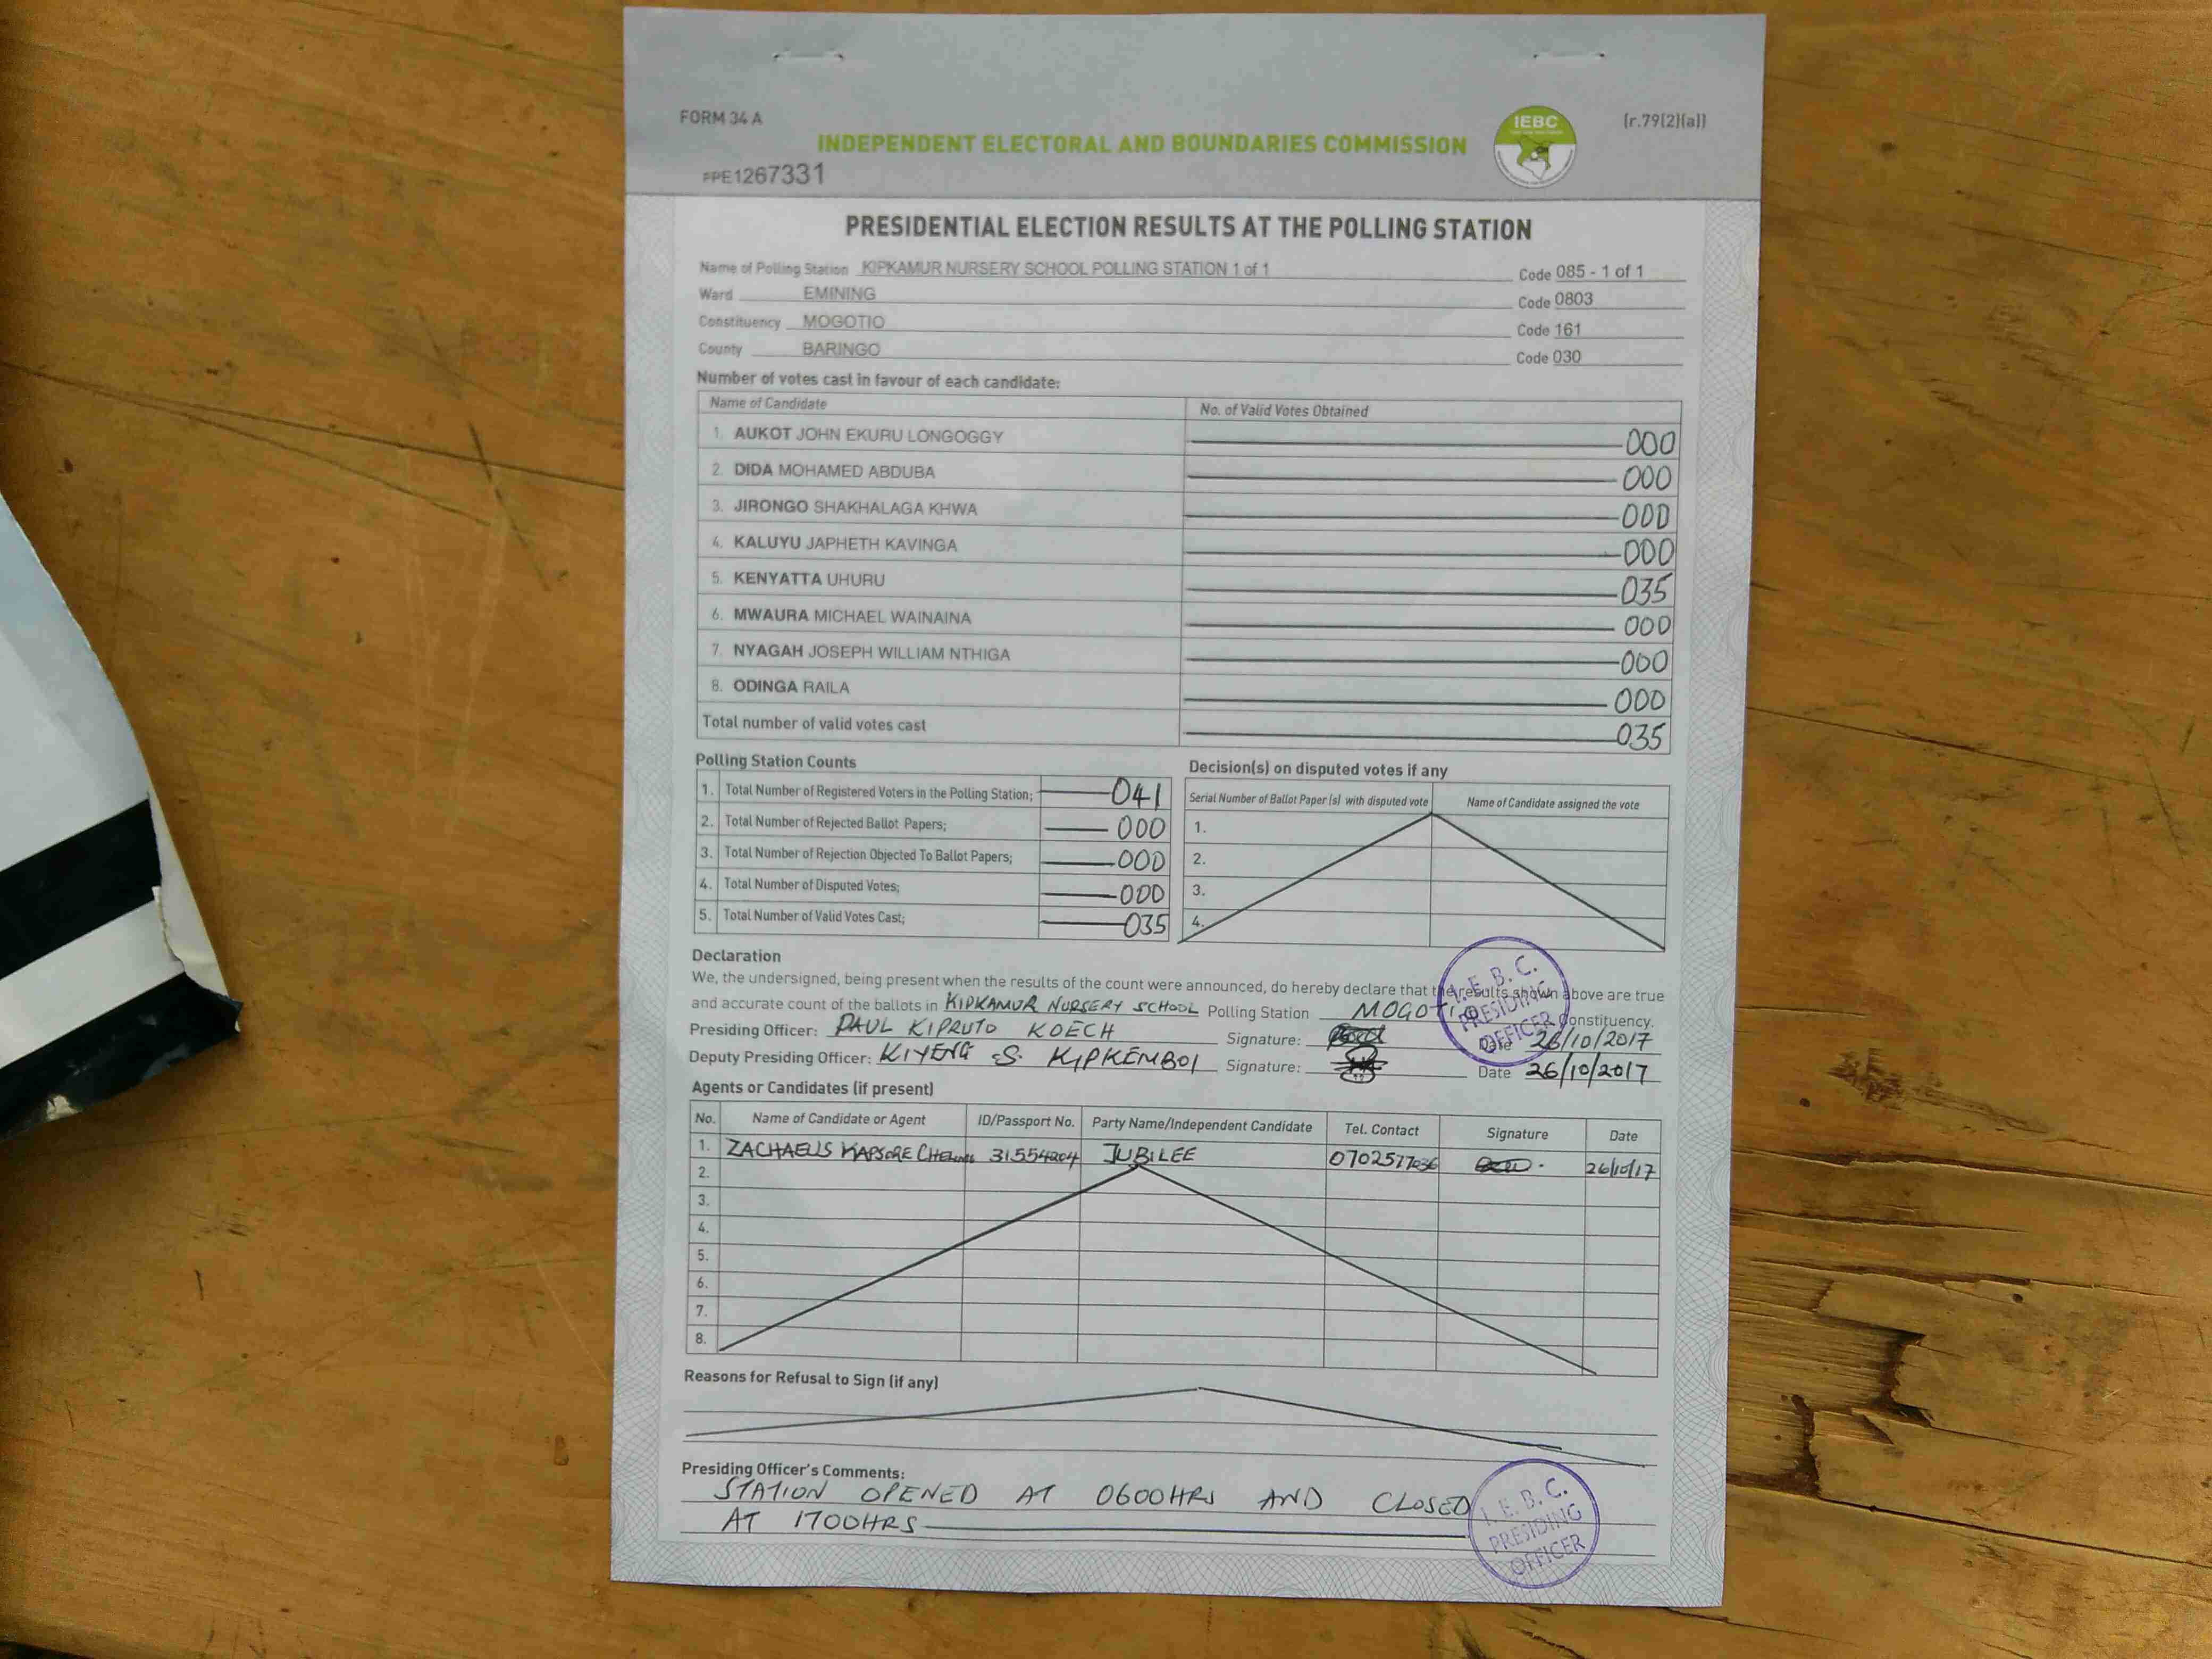 FORM 34 A
INDEPENDENT ELECTORAL AND BOUNDARIES COMMISSION
IEBC
[r.79(2)(a)]
PPE1267331
PRESIDENTIAL ELECTION RESULTS AT THE POLLING STATION
Name of Polling Station KIPKAMUR NURSERY SCHOOL POLLING STATION 1 of 1 Code 085 - 1 of 1
Ward EMINING Code 0803
Constituency MOGOTIO Code 161
County BARINGO Code 030
Number of votes cast in favour of each candidate:
Name of Candidate No. of Valid Votes Obtained
1. AUKOT JOHN EKURU LONGOGGY 000
2. DIDA MOHAMED ABDUBA 000
3. JIRONGO SHAKHALAGA KHWA 000
4. KALUYU JAPHETH KAVINGA 000
5. KENYATTA UHURU 035
6. MWAURA MICHAEL WAINAINA 000
7. NYAGAH JOSEPH WILLIAM NTHIGA 000
8. ODINGA RAILA 000
Total number of valid votes cast 035
Polling Station Counts
1. Total Number of Registered Voters in the Polling Station; 041
2. Total Number of Rejected Ballot Papers; 000
3. Total Number of Rejection Objected To Ballot Papers; 000
4. Total Number of Disputed Votes; 000
5. Total Number of Valid Votes Cast; 035
Decision(s) on disputed votes if any
Serial Number of Ballot Paper (s) with disputed vote Name of Candidate assigned the vote
1.
2.
3.
4.
Declaration
We, the undersigned, being present when the results of the count were announced, do hereby declare that the results shown above are true
and accurate count of the ballots in KIPKAMUR NURSERY SCHOOL Polling Station MOGOTIO Constituency.
Presiding Officer: PAUL KIPRUTO KOECH Signature: Date 26/10/2017
Deputy Presiding Officer: KIYENG S. KIPKEMBOI Signature: Date 26/10/2017
I. E. B. C.
PRESIDING
OFFICER
Agents or Candidates (if present)
No. Name of Candidate or Agent ID/Passport No. Party Name/Independent Candidate Tel. Contact Signature Date
1. ZACHAEUS KAPSORE 31554204 JUBILEE 0702577036 26/10/17
2.
3.
4.
5.
6.
7.
8.
Reasons for Refusal to Sign (if any)
Presiding Officer's Comments:
STATION OPENED AT 0600HRS AND CLOSED
AT 1700HRS
I. E. B. C.
PRESIDING
OFFICER